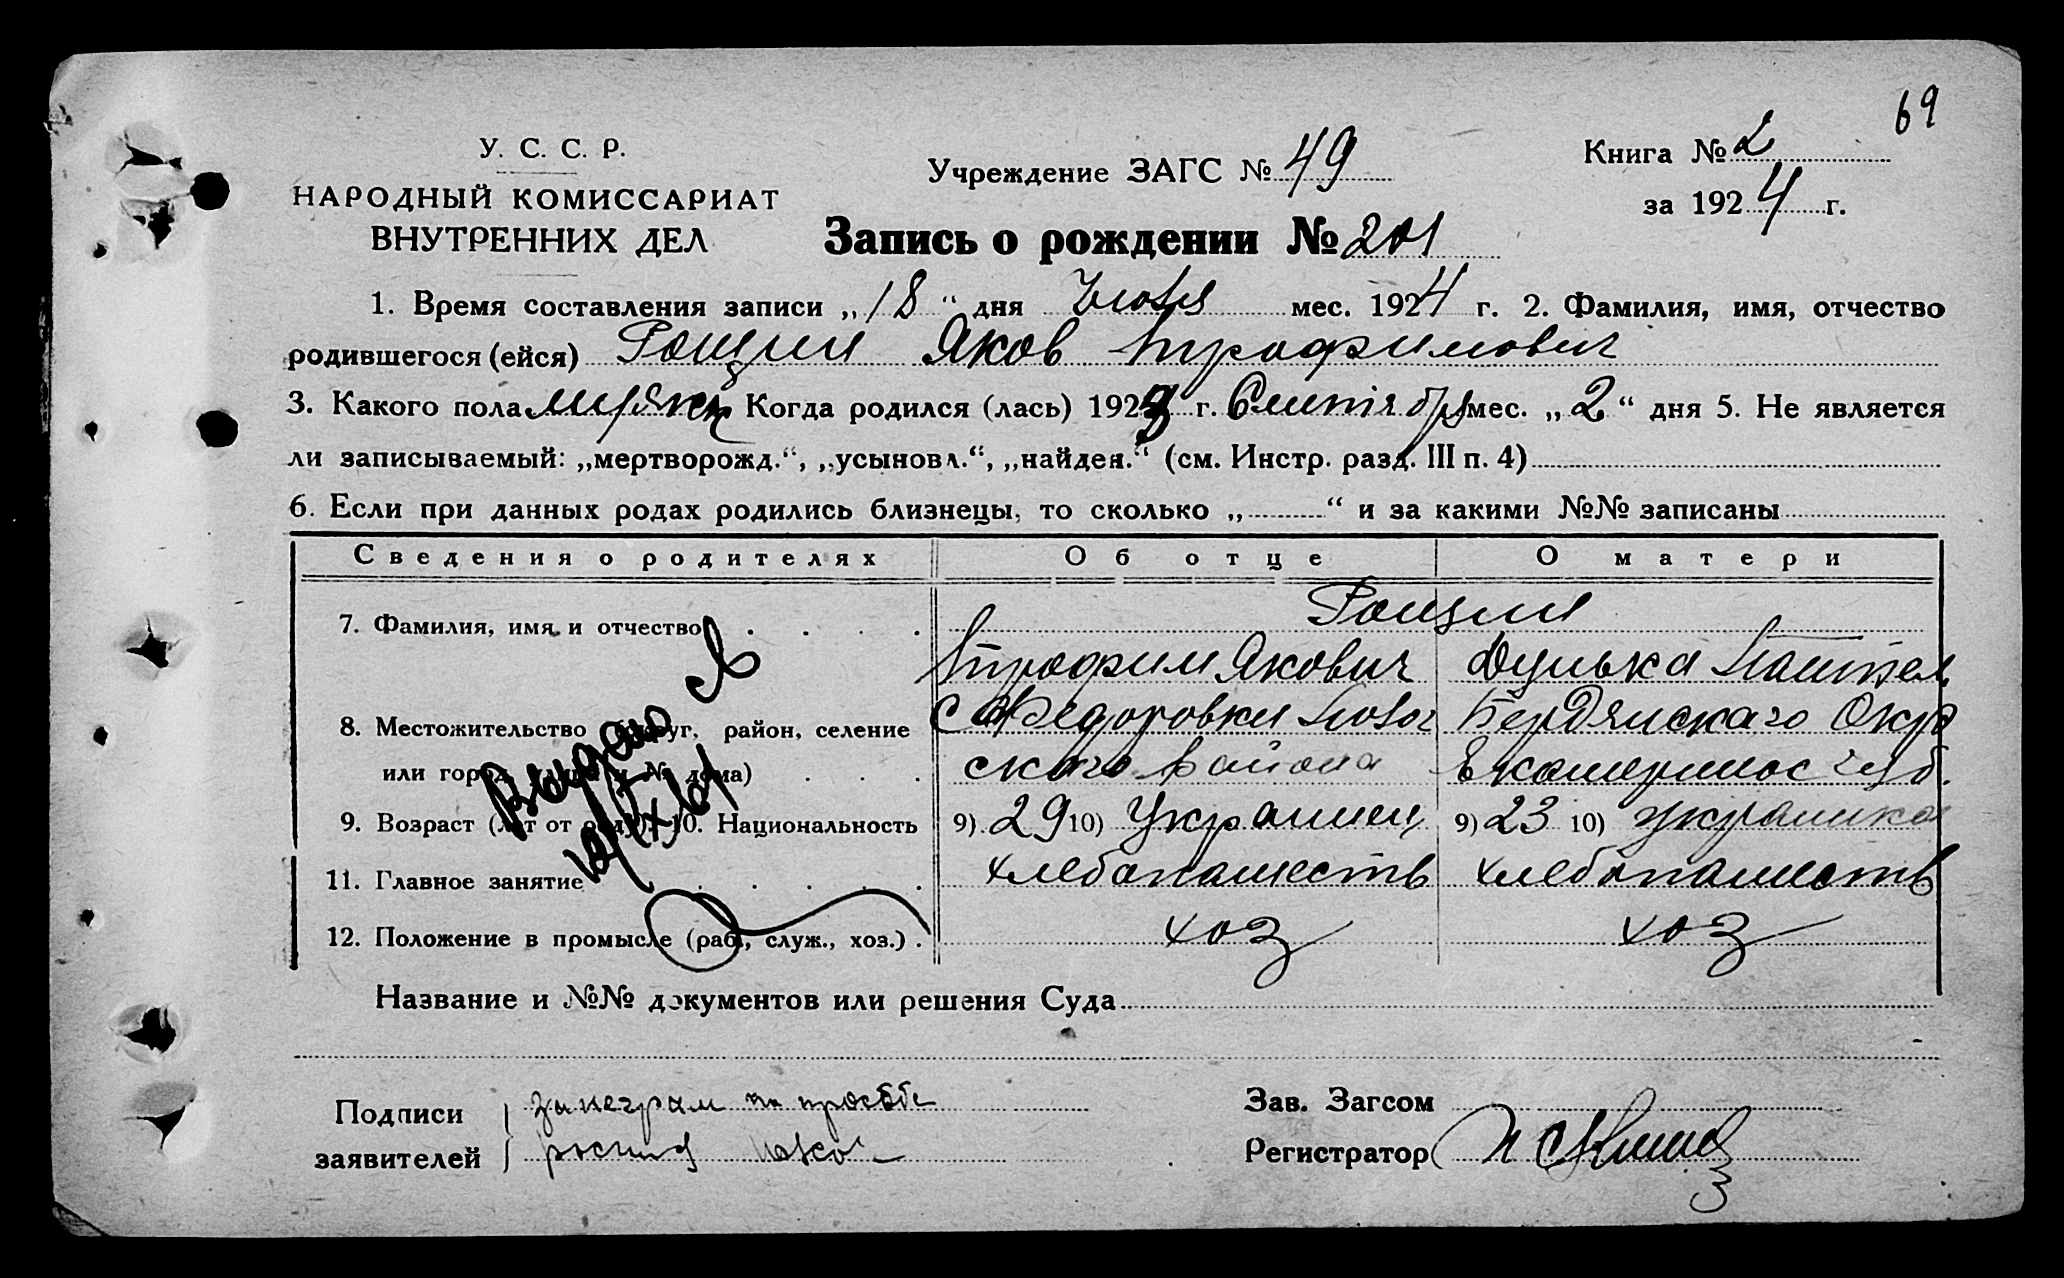 69
У. С. С. Р.
НАРОДНЫЙ КОМИССАРИАТ
ВНУТРЕННИХ ДЕЛ
Учреждение ЗАГС № 49
Книга № 2
за 1924 г.
Запись о рождении № 201
1. Время составления записи „18“ дня мес. 1924 г. 2. Фамилия, имя, отчество
родившегося (ейся) Рощин Яков Трофимович
3. Какого пола мужск Когда родился (лась) 1923 г. мес. „2“ дня 5. Не является
ли записываемый: „мертворожд.“, „усыновл.“, „найден.“ (см. Инстр. разд. III п. 4)
6. Если при данных родах родились близнецы, то сколько „ “ и за какими №№ записаны
Сведения о родителях Об отце О матери
7. Фамилия, имя и отчество Рощин
Трофим Якович
8. Местожительство (округ, район, селение С Федоровки Бердянскаго Окр
или город, улица и № дома) ского района Екатеринос губ.
9. Возраст (лет от роду) 10. Национальность 9) 29 10) Украинец 9) 23 10) украинка
11. Главное занятие хлебопашеств хлебопашеств
12. Положение в промысле (раб., служ., хоз.) хоз хоз
Выдано
Название и №№ документов или решения Суда
Подписи
заявителей
по просьбе
Зав. Загсом
Регистратор